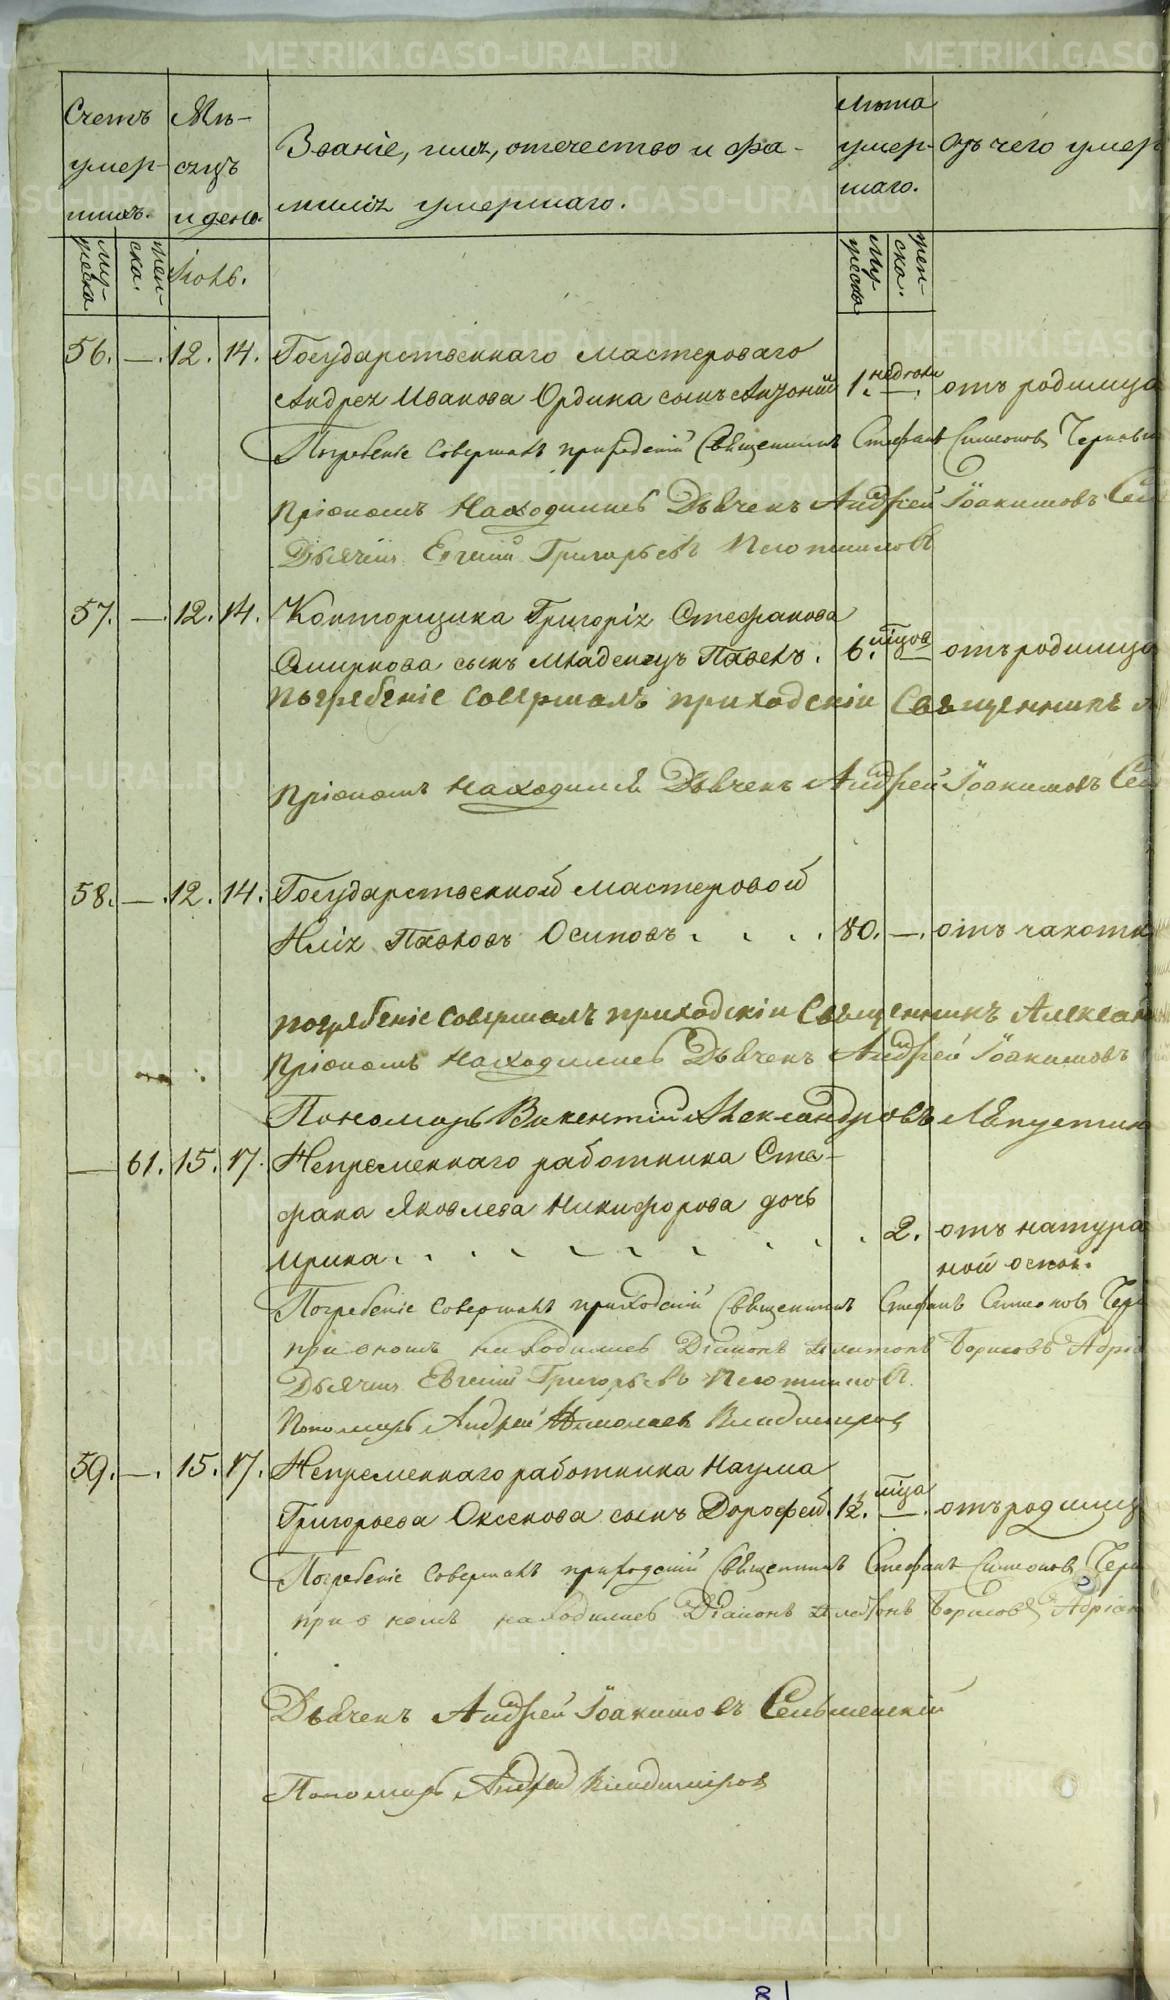 Счетъ умер- шихъ.
Мѣ- сяцъ и день.
Званіе, имя, отечество и фа-
милія умершаго.
лѣта умер- шаго.
Отъ чего умер
му- жеска
жен- ска.
Іюнь.
му- жеска
жен- ска.
56. — 12. 14. Государственнаго мастероваго
Андрея Иванова Ордина сынъ Антоній 1. недѣли —. отъ родимца
Погребеніе совершалъ приходскій Священникъ Стефанъ Симеоновъ
при ономъ находились Дьячекъ Андрей Іоакимовъ
Дьячекъ Евгеній Григорьевъ
57. — 12. 14. Конторщика Григорія Стефанова
Смирнова сынъ младенецъ Павелъ. 6. мѣсцов — отъ родимца
погребеніе совершалъ приходскій Священникъ
при ономъ находились Дьячекъ Андрей Іоакимовъ
58. — 12. 14. Государственной мастеровой
Илія Павловъ Осиповъ. 80. —. отъ чахотк
погребеніе совершалъ приходскій Священникъ Алекса
при ономъ находились Дьячекъ Андрей Іоакимовъ
Пономарь Викентій Александровъ Ляпустин
— 61. 15. 17. Непременнаго работника Сте-
фана Яковлева Никифорова дочь
Ирина. 2. отъ натура
ной оспы.
Погребеніе совершалъ приходскій Священникъ Стефанъ Симеоновъ
при ономъ находились Діаконъ Платонъ Борисовъ Адріа
Дьячекъ Евгеній Григорьевъ
Пономарь Андрей Николаев Владимиров
59. —. 15. 17. Непременнаго работника Наума
Григорьева Оксенова сынъ Дорофей. 12. мѣца —. отъ родимц
Погребеніе совершалъ приходскій Священникъ Стефанъ Симеоновъ
при ономъ находились Діаконъ Платонъ Борисовъ Адріан
Дьячекъ Андрей Іоакимовъ Сельменскій
Пономарь Андрей Владимиров
METRIKI.GASO-URAL.RU